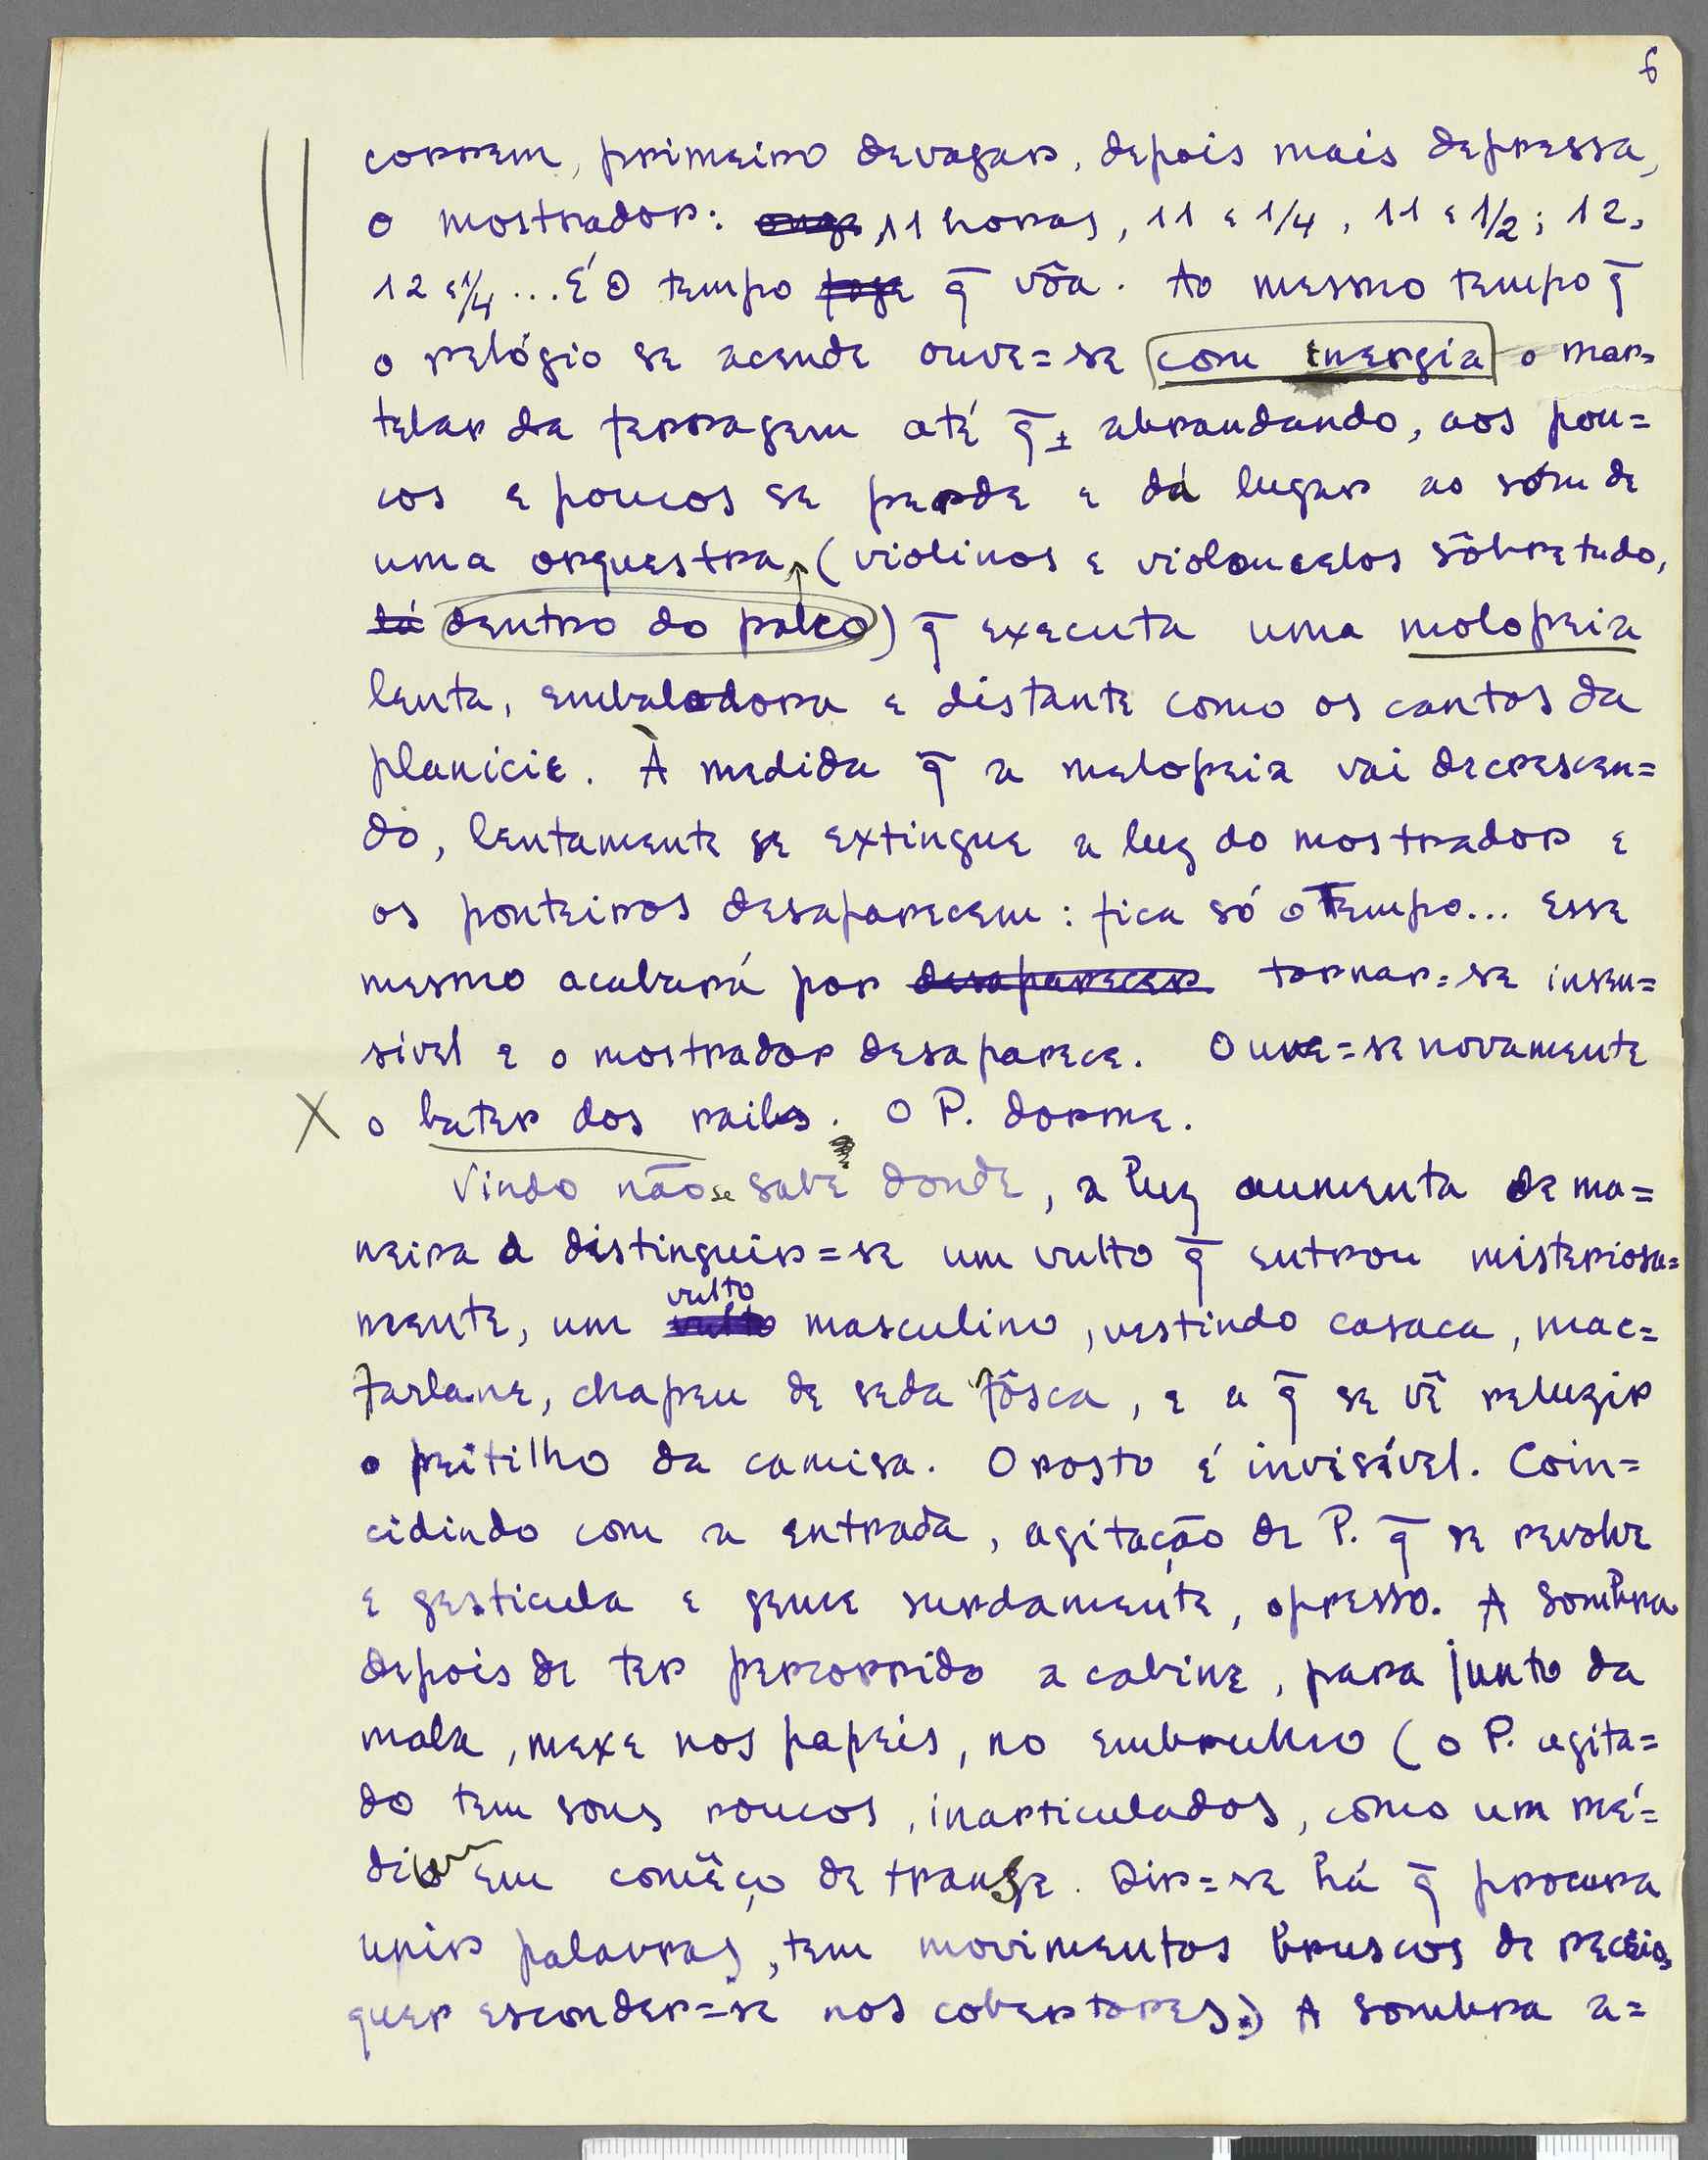 6
correm, primeiro devagar, depois mais depressa,
o mostrador: onze 11 horas, 11 e 1/4, 11 e 1/2; 12,
12 e 1/4... É O tempo foge q̄ vôa. Ao mesmo tempo q̄
o relógio se acende ouve=se com energia o mar=
telar da ferragem até q̄ abrandando, aos pou=
cos e poucos se perde e dá lugar ao som de
uma orquestra (violinos e violoncelos sôbretudo,
lá dentro do palco) q̄ executa uma melopeia
lenta, embaladora e distante como os cantos da
planície. À medida q̄ a melopeia vai decrescen=
do, lentamente se extingue a luz do mostrador e
os ponteiros desaparecem: fica só o Tempo... Esse
mesmo acabará por desaparecer tornar=se insen=
sível e o mostrador desaparece. Ouve=se novamente
X o bater dos rails. O P. dorme.
Vindo não se sabe donde, a luz aumenta de ma=
neira a distinguir=se um vulto q̄ entrou misteriosa=
mente, um vulto vulto masculino, vestindo casaca, mac=
farlane, chapeu de seda fôsca, e a q̄ se vê reluzir
o peitilho da camisa. O rosto é invisível. Coin=
cidindo com a entrada, agitação de P. q̄ se revolve
e gesticula e geme surdamente, opresso. A Sombra
depois de ter percorrido a cabine, para junto da
mala, mexe nos papeis, no embrulho (o P. agita=
do tem sons roucos, inarticulados, como um mé=
dium em comêço de transe. Dir=se há q̄ procura
unir palavras, tem movimentos bruscos de receio,
quer esconder=se nos cobertores.) A sombra a=